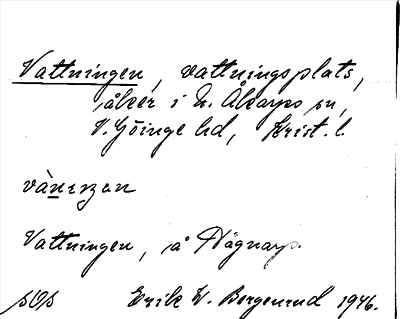 Vattningen, vattningsplats,
åker i N. Åkarps sn,
V. Göinge hd, Krist. l.
Vattningen, å Hägnarp.
SOS Erik W. Borgenrud 1946.